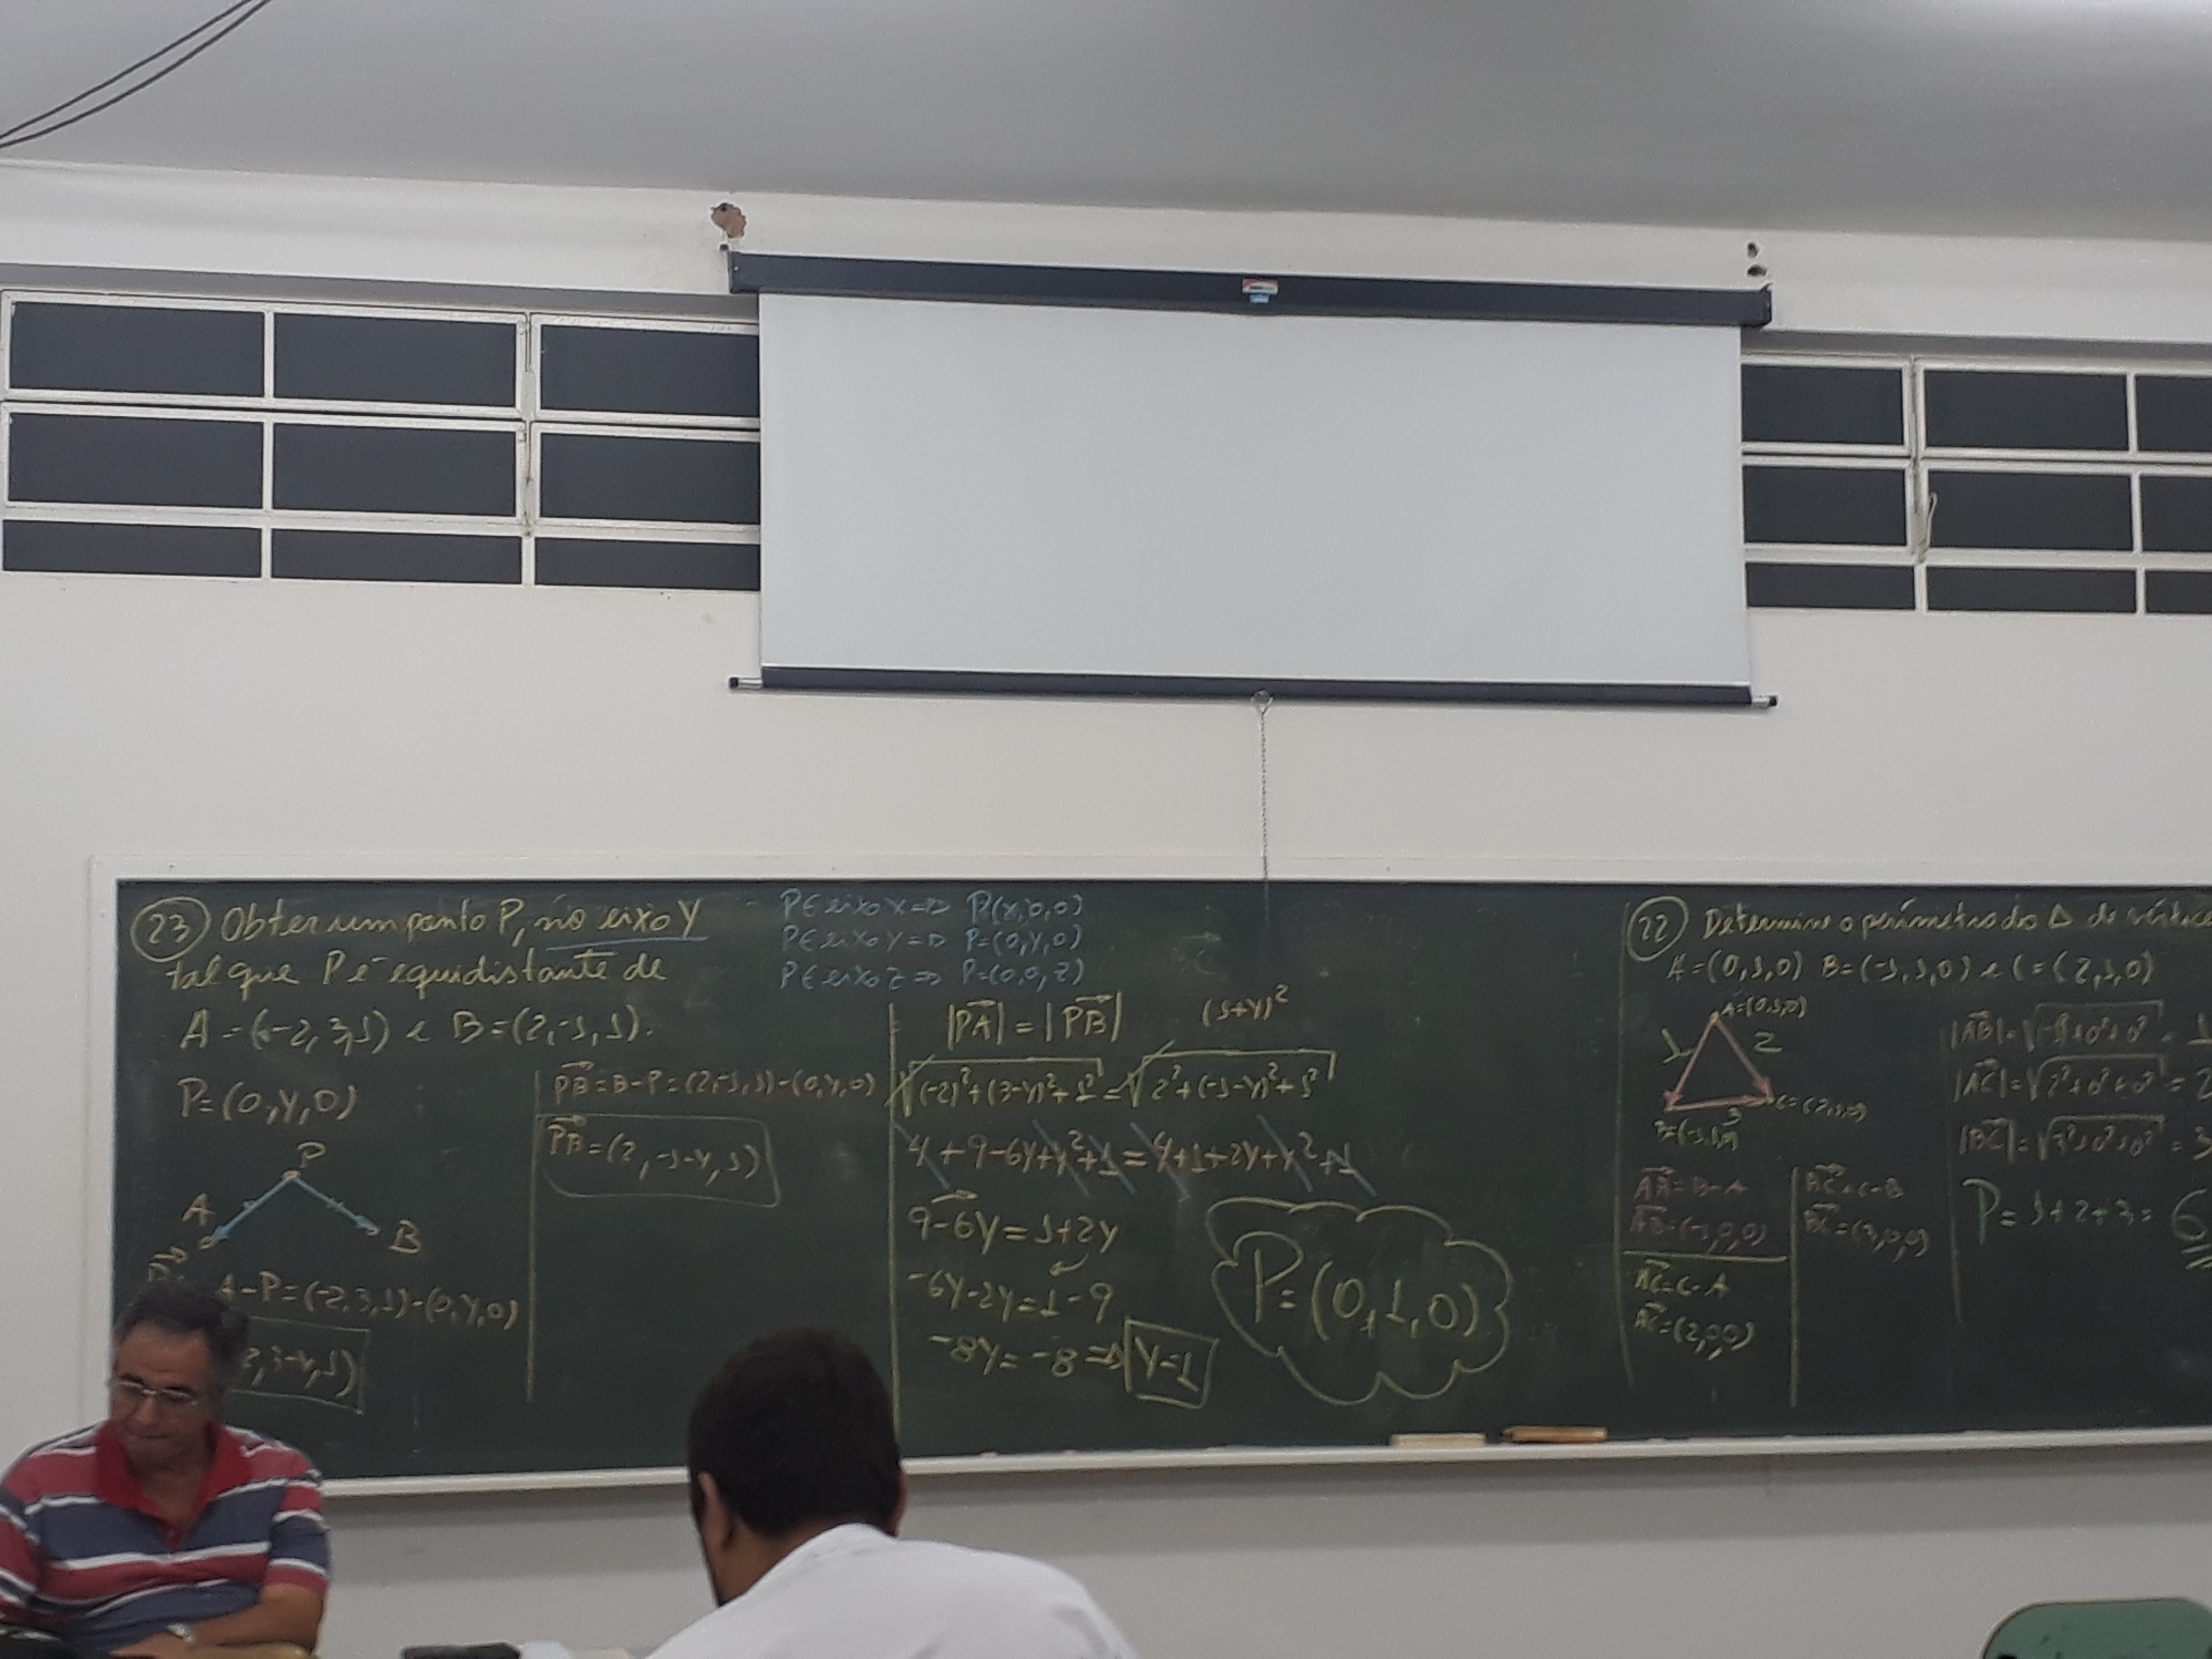 23 Obter um ponto P, no eixo Y
tal que P é equidistante de
A = (-2, 3, 1) e B = (2, -1, 1).
P = (0, Y, 0)
P
A
B
A-P = (-2, 3, 1) - (0, Y, 0)
2, 3-Y, 1)
PB = B-P = (2, -1, 1) - (0, Y, 0)
PB = (2, -1-Y, 1)
P ∈ eixo X => P(X, 0, 0)
P ∈ eixo Y => P = (0, Y, 0)
P ∈ eixo Z => P = (0, 0, Z)
|PA| = |PB|
(1+Y)²
√(-2)² + (3-Y)² + 1² = √2² + (-1-Y)² + 1²
4 + 9 - 6Y + Y² + 1 = 4 + 1 + 2Y + Y² + 1
9 - 6Y = 1 + 2Y
-6Y - 2Y = 1 - 9
-8Y = -8 => Y = 1
P = (0, 1, 0)
22 Determine o perímetro do Δ de vértice
A = (0, 1, 0) B = (-1, 1, 0) e C = (2, 1, 0)
A = (0, 1, 0)
1
2
3
C = (2, 1, 0)
B = (-1, 1, 0)
= B-A
AB = (-1, 0, 0)
AC = C-A
AC = (2, 0, 0)
= C-B
BC = (3, 0, 0)
|AB| = √(-1)² + 0² + 0² = 1
|AC| = √2² + 0² + 0² = 2
|BC| = √3² + 0² + 0² = 3
P = 1 + 2 + 3 = 6